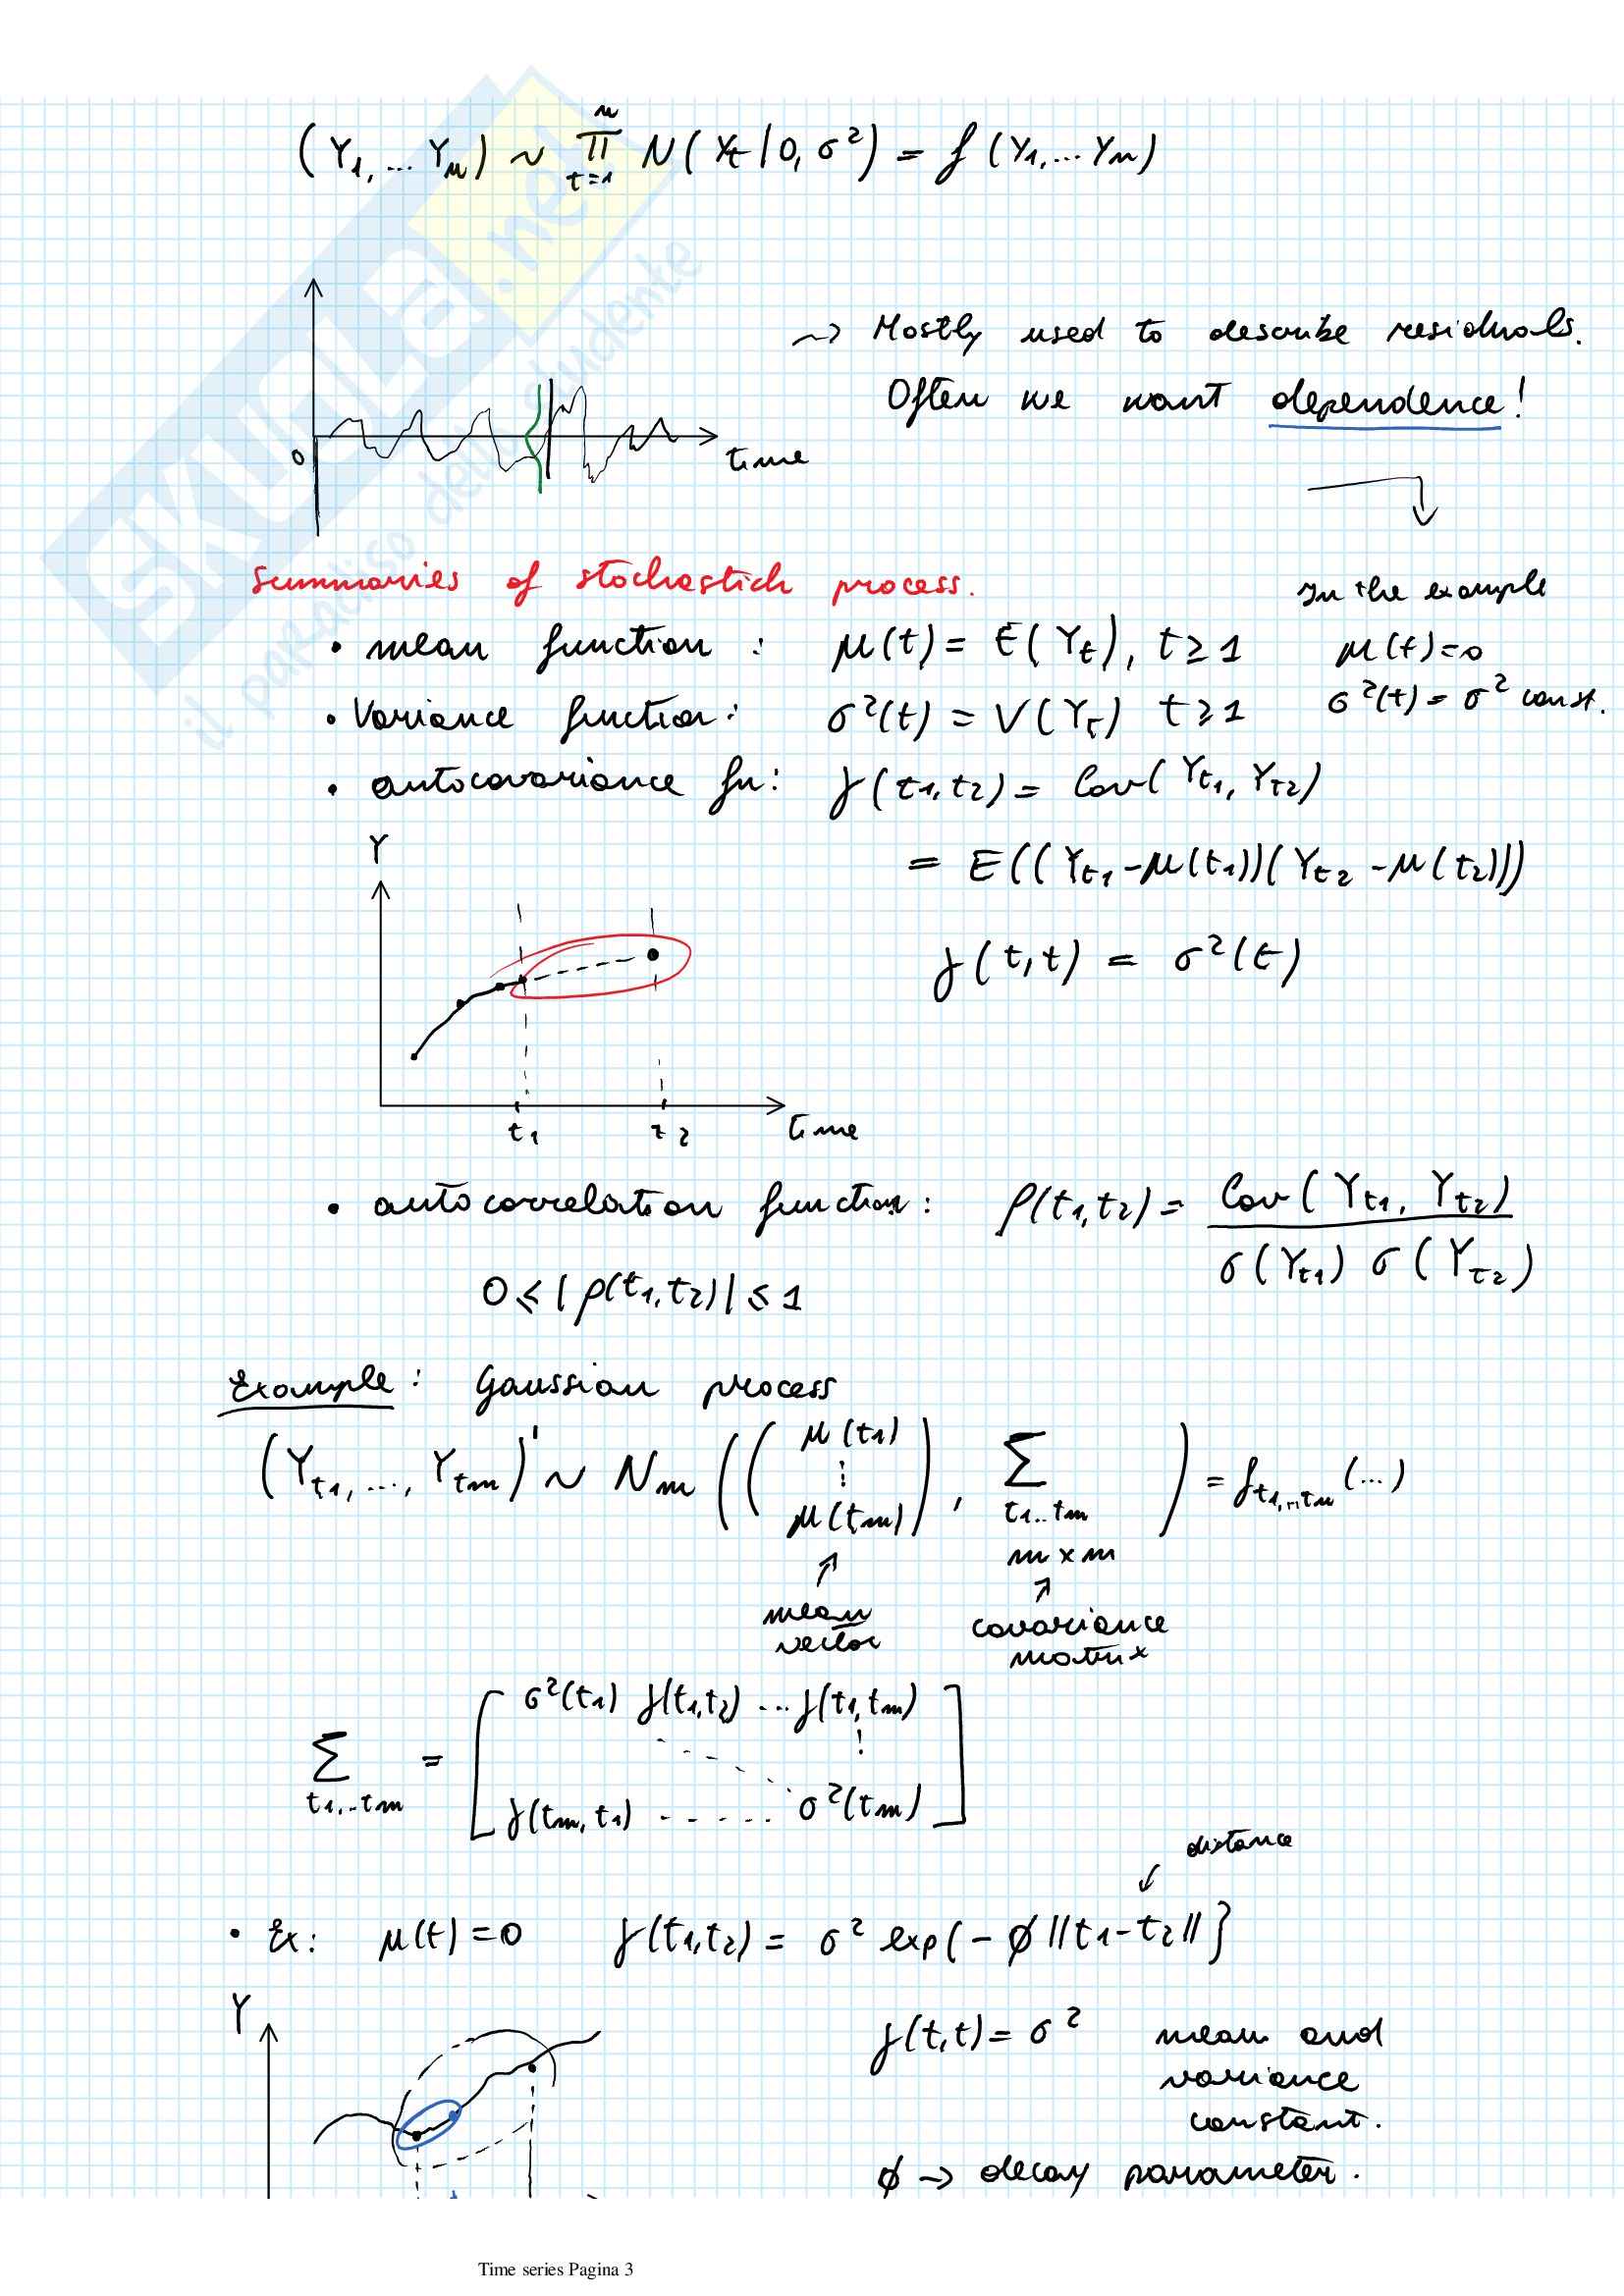 (Y1, ... Yn) ~ ∏ t=1 n N(Yt | 0, σ²) = f(Y1, ... Yn)
SKUOLA.net
il paradiso dello studente
0
time
~> Mostly used to describe residuals.
Often we want dependence!
Summaries of stochastich process.
In the example
• mean function : μ(t) = E(Yt), t ≥ 1
μ(t) = 0
• Variance function: σ²(t) = V(Yt) t ≥ 1
σ²(t) = σ² const.
• autocovariance fn: γ(t1,t2) = Cov(Yt1, Yt2)
= E((Yt1 - μ(t1))(Yt2 - μ(t2)))
γ(t,t) = σ²(t)
Y
t1
t2
time
• autocorrelation function : ρ(t1,t2) = Cov(Yt1, Yt2) / σ(Yt1) σ(Yt2)
0 ≤ |ρ(t1,t2)| ≤ 1
Example : Gaussian process
(Yt1, ..., Ytm)' ~ Nm ((μ(t1) ⋮ μ(tm)), Σ t1..tm) = ft1,..,tm (...)
m x m
mean vector
covariance matrix
Σ t1,..tm = [σ²(t1) γ(t1,t2) ... γ(t1,tm)
γ(tm,t1) ...... σ²(tm)]
distance
• Ex: μ(t) = 0 γ(t1,t2) = σ² exp{-ϕ ||t1-t2||}
Y
γ(t,t) = σ² mean and
variance
constant.
ϕ -> decay parameter.
Time series Pagina 3